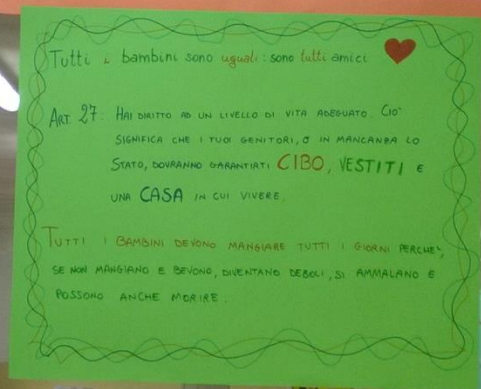 Tutti i bambini sono uguali: sono tutti amici
ART. 27: HAI DIRITTO AD UN LIVELLO DI VITA ADEGUATO. CIO'
SIGNIFICA CHE I TUOI GENITORI, O IN MANCANBA LO
STATO, DOVRANNO GARANTIRTI CIBO, VESTITI E
UNA CASA IN CUI VIVERE.
TUTTI I BAMBINI DEVONO MANGIARE TUTTI I GIORNI PERCHE',
SE NON MANGIANO E BEVONO, DIVENTANO DEBOLI, SI AMMALANO E
POSSONO ANCHE MORIRE.